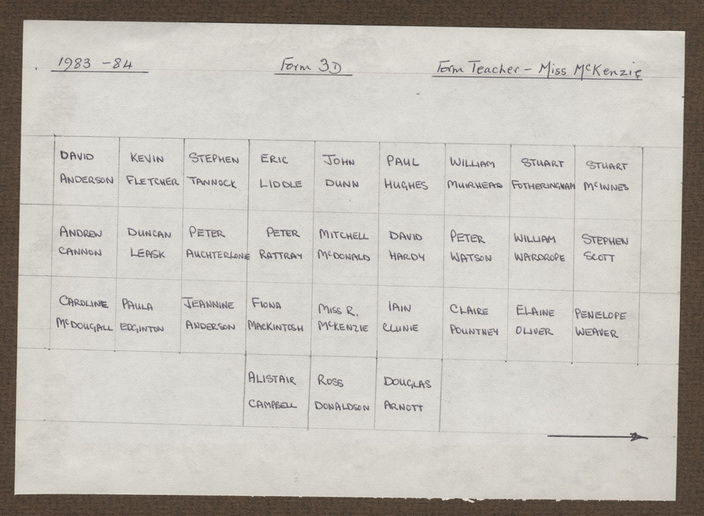 1983-84 Form 3D Form Teacher - Miss McKenzie
DAVID KEVIN STEPHEN ERIC JOHN PAUL WILLIAM STUART STUART
ANDERSON FLETCHER TANNOCK LIDDLE DUNN HUGHES MUIRHEAD FOTHERINGHAM McINNES
ANDREW DUNCAN PETER PETER MITCHELL DAVID PETER WILLIAM STEPHEN
CANNON LEASK AUCHTERLONIE RATTRAY McDONALD HARDY WATSON WARDROPE SCOTT
CAROLINE PAULA JEANNINE FIONA MISS R. IAIN CLAIRE ELAINE PENELOPE
McDOUGALL EDGINTON ANDERSON MACKINTOSH McKENZIE CLUNIE POUNTNEY OLIVER WEAVER
ALISTAIR ROSS DOUGLAS
CAMPBELL DONALDSON ARNOTT